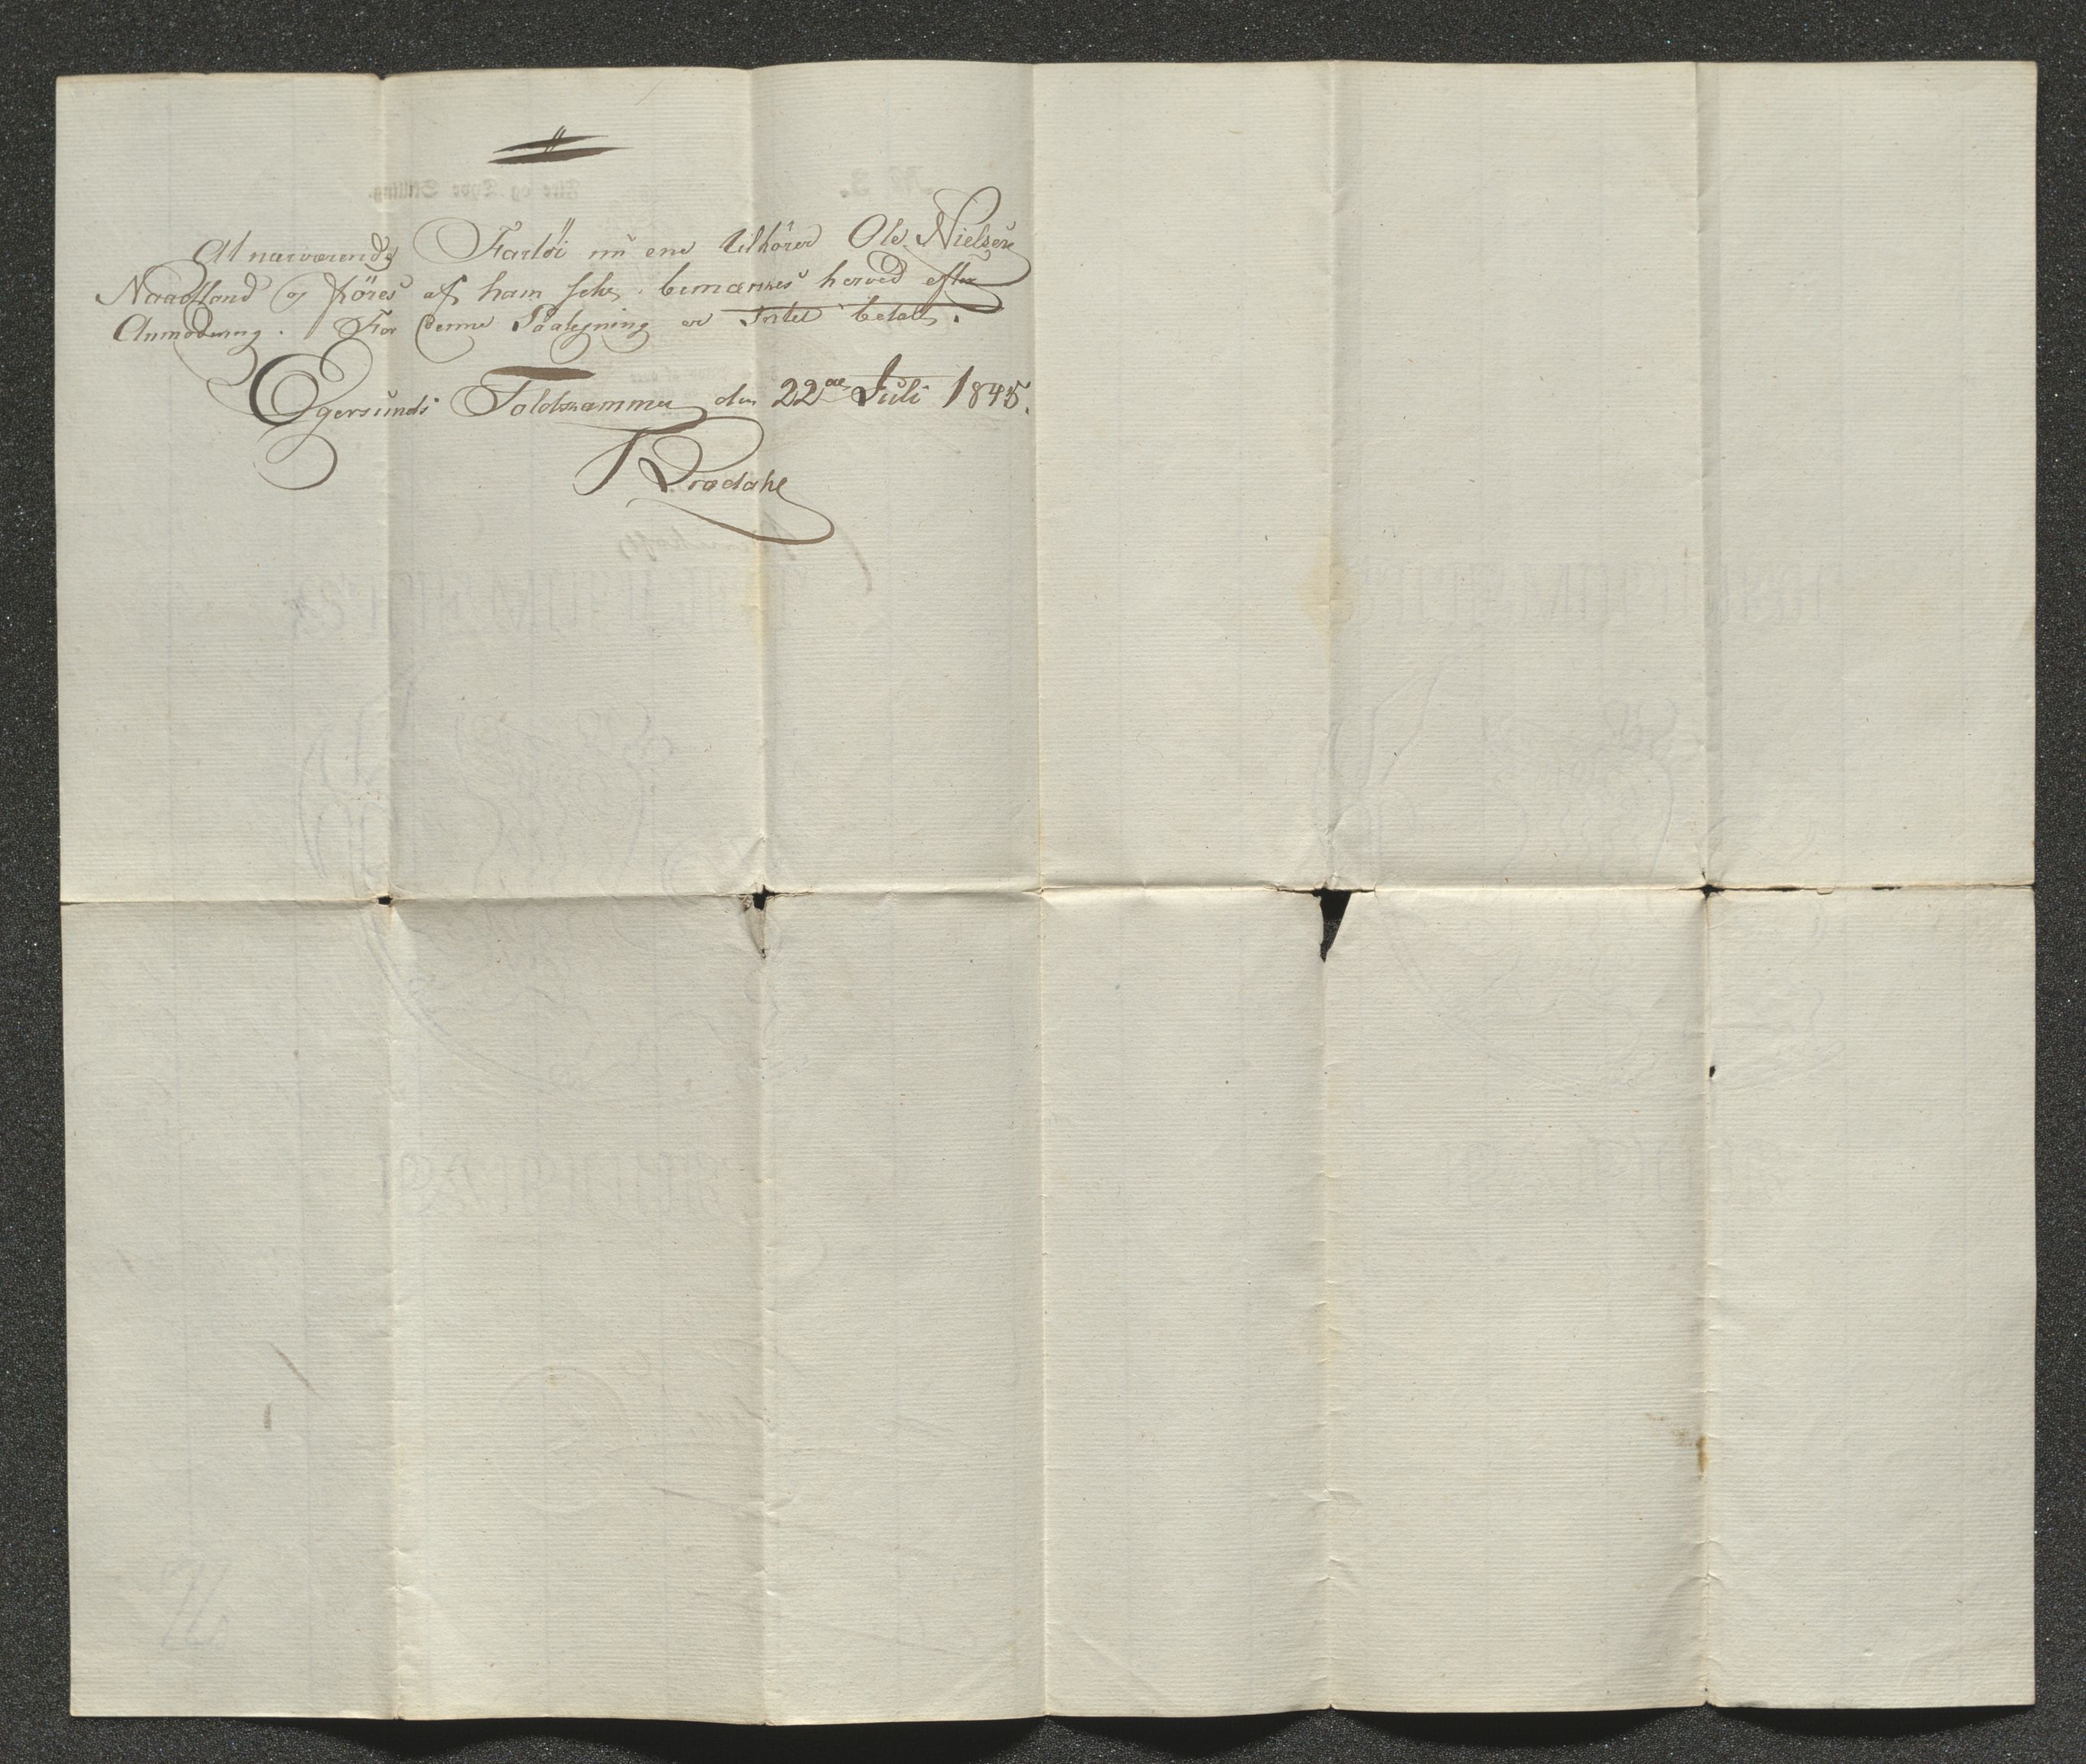 At nærværende Fartöi nu ene tilhörer Ole Nielsen
Naadland og föres af ham selv, bemærkes herved efter
Anmodning. For denne Paategning er Intet betalt.
Egersunds Toldkammer den 22de Juli 1845.